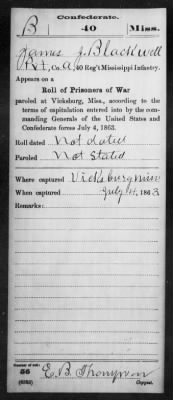 Confederate.
B 40 Miss.
James J. Blackwell
Pvt, Co. A, 40 Reg't Mississippi Infantry.
Appears on a
Roll of Prisoners of War
paroled at Vicksburg, Miss., according to the
terms of capitulation entered into by the com-
manding Generals of the United States and
Confederate forces July 4, 1863.
Roll dated Not dated
Paroled Not Stated
Where captured Vicksburg Miss
When captured July 4, 1863
Remarks:
Number of roll:
56
E. B. Thompson
Copyist.